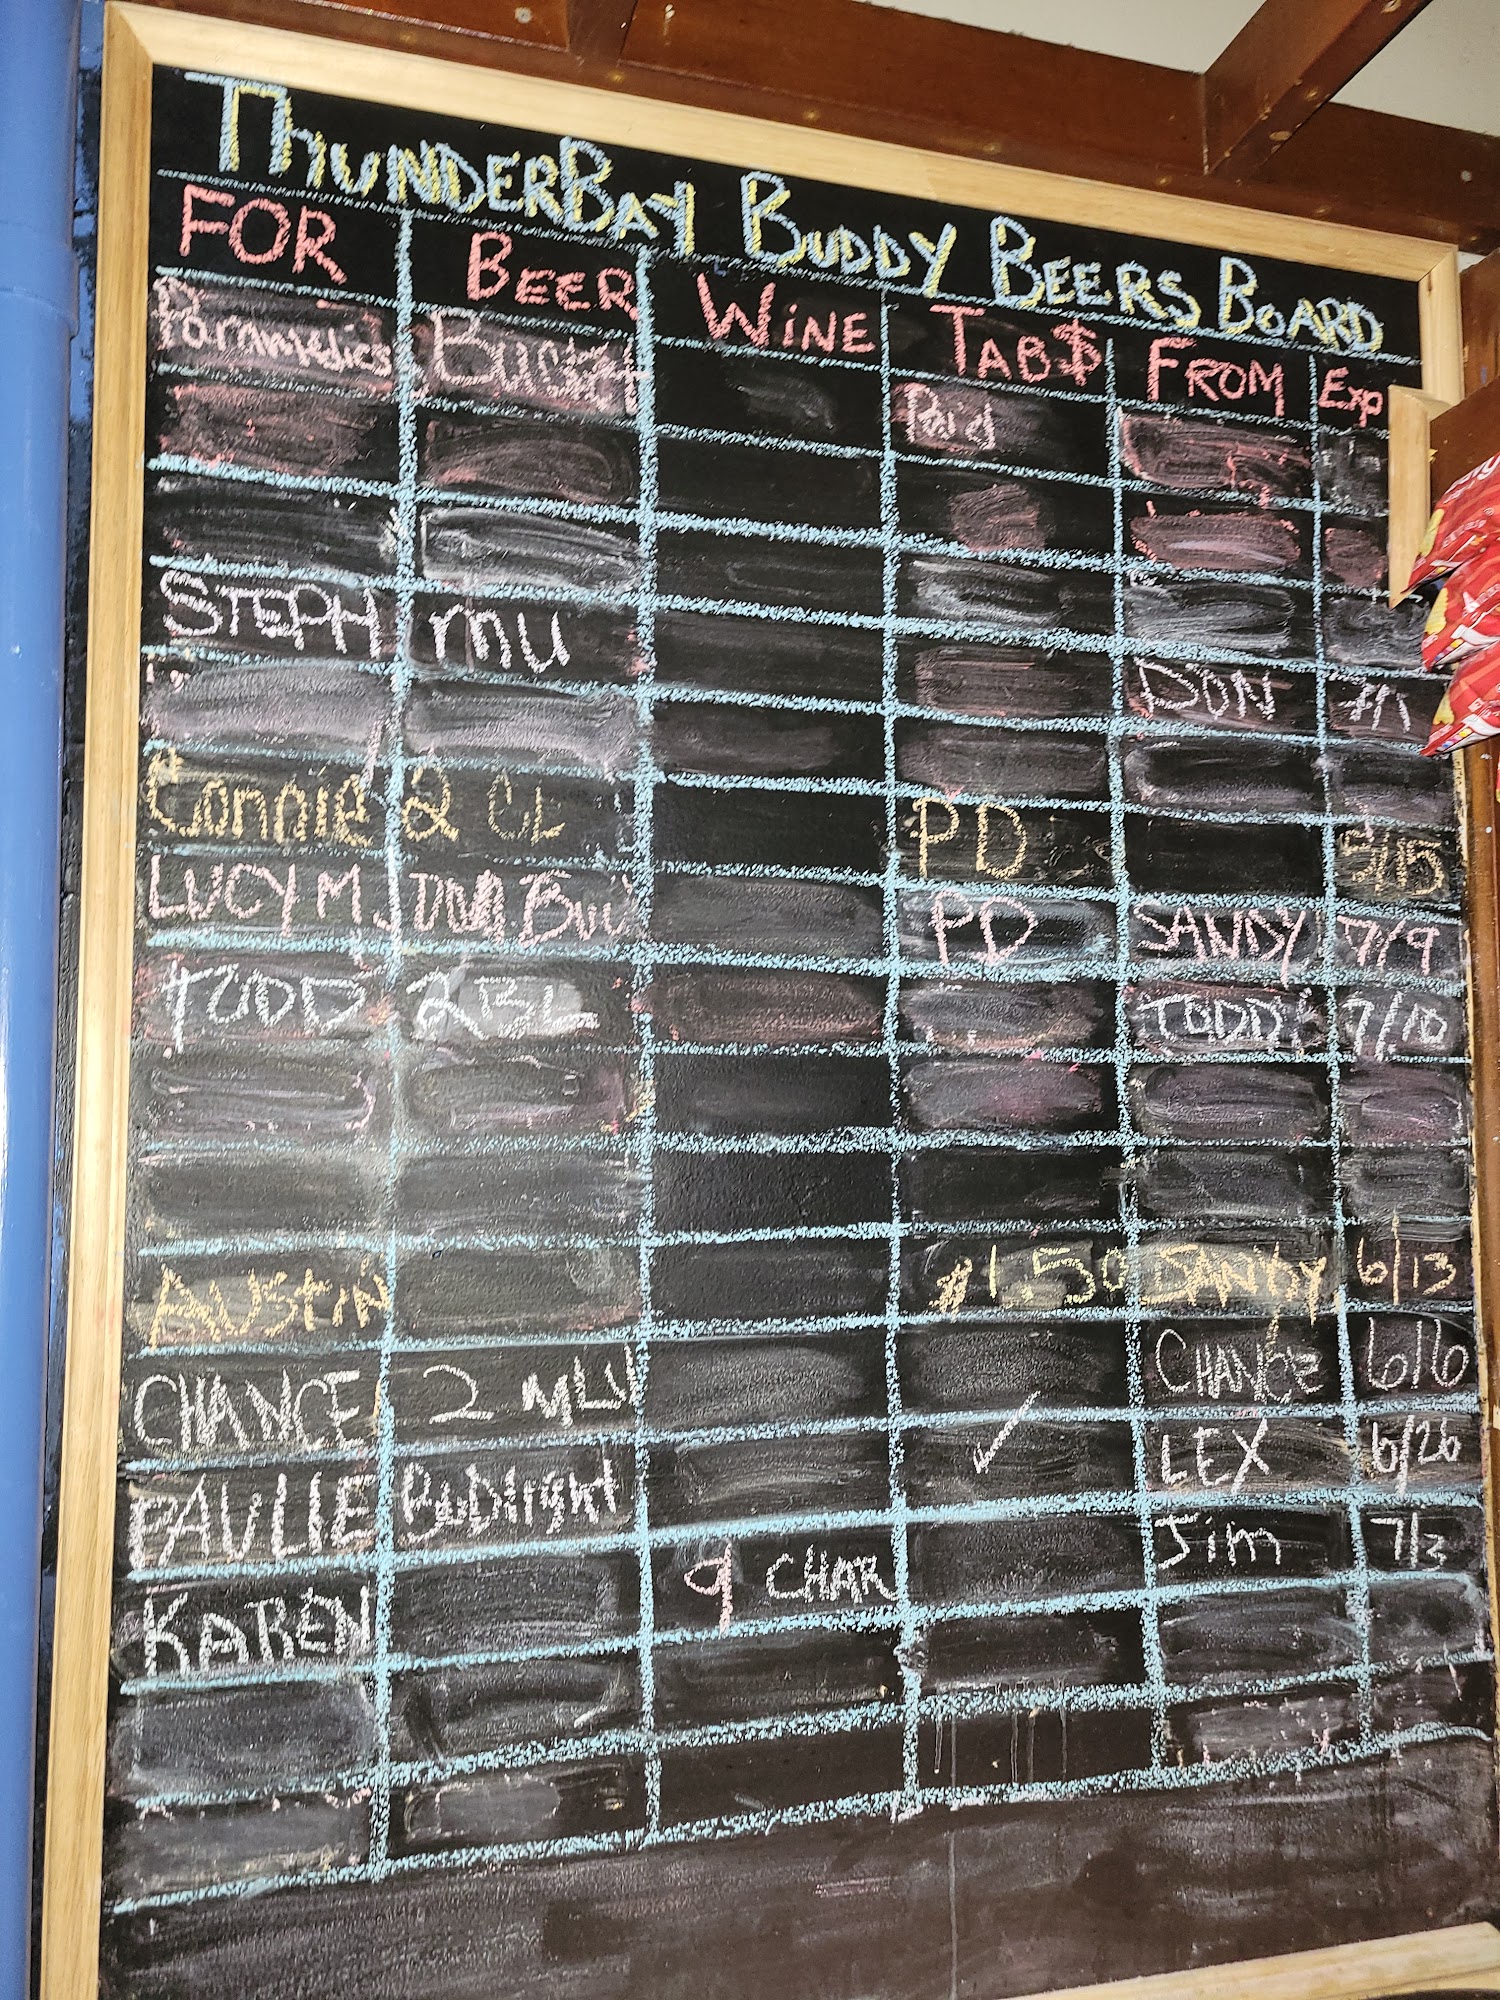 THUNDERBAY BUDDY BEERS BOARD
FOR BEER WINE TAB$ FROM Exp
Paramedics Bucket Paid
STEPH MU DON 7/1
Connie 2 CL PD 5/15
LUCY M. PD SANDY 7/9
TODD 2 BL TODD 7/10
AUSTIN $1.50 SANDY 6/13
CHANCE 2 MLU CHANCE 6/6
PAULIE BUDLIGHT ✓ LEX 6/26
KAREN 9 CHAR Jim 7/2